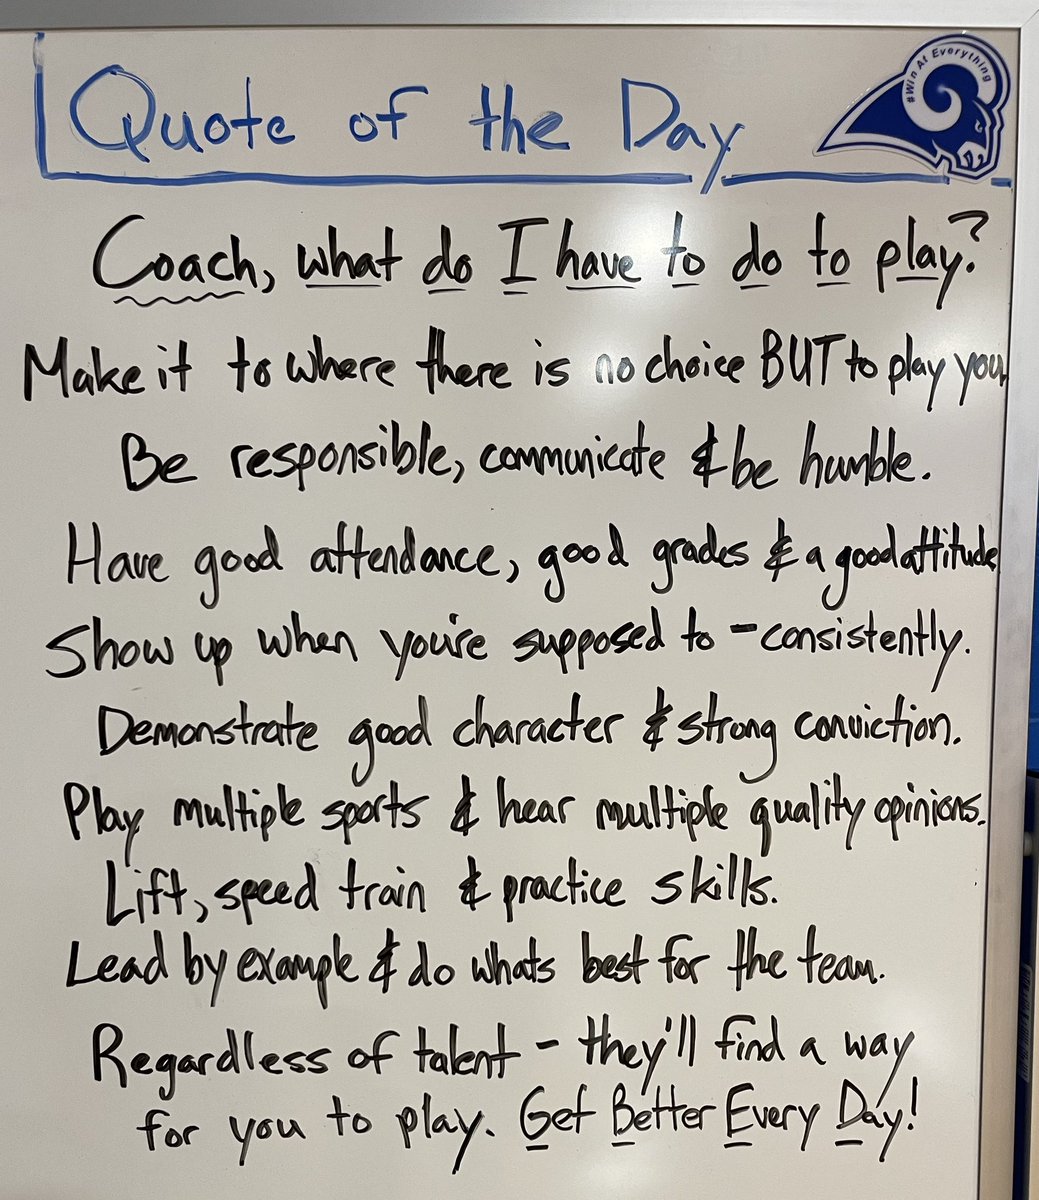 Quote of the Day
#Win At Everything
Coach, what do I have to do to play?
Make it to where there is no choice BUT to play you.
Be responsible, communicate & be humble.
Have good attendance, good grades & a good attitude
Show up when you're supposed to - consistently.
Demonstrate good character & strong conviction.
Play multiple sports & hear multiple quality opinions.
Lift, speed train & practice skills.
Lead by example & do whats best for the team.
Regardless of talent - they'll find a way
for you to play. Get Better Every Day!